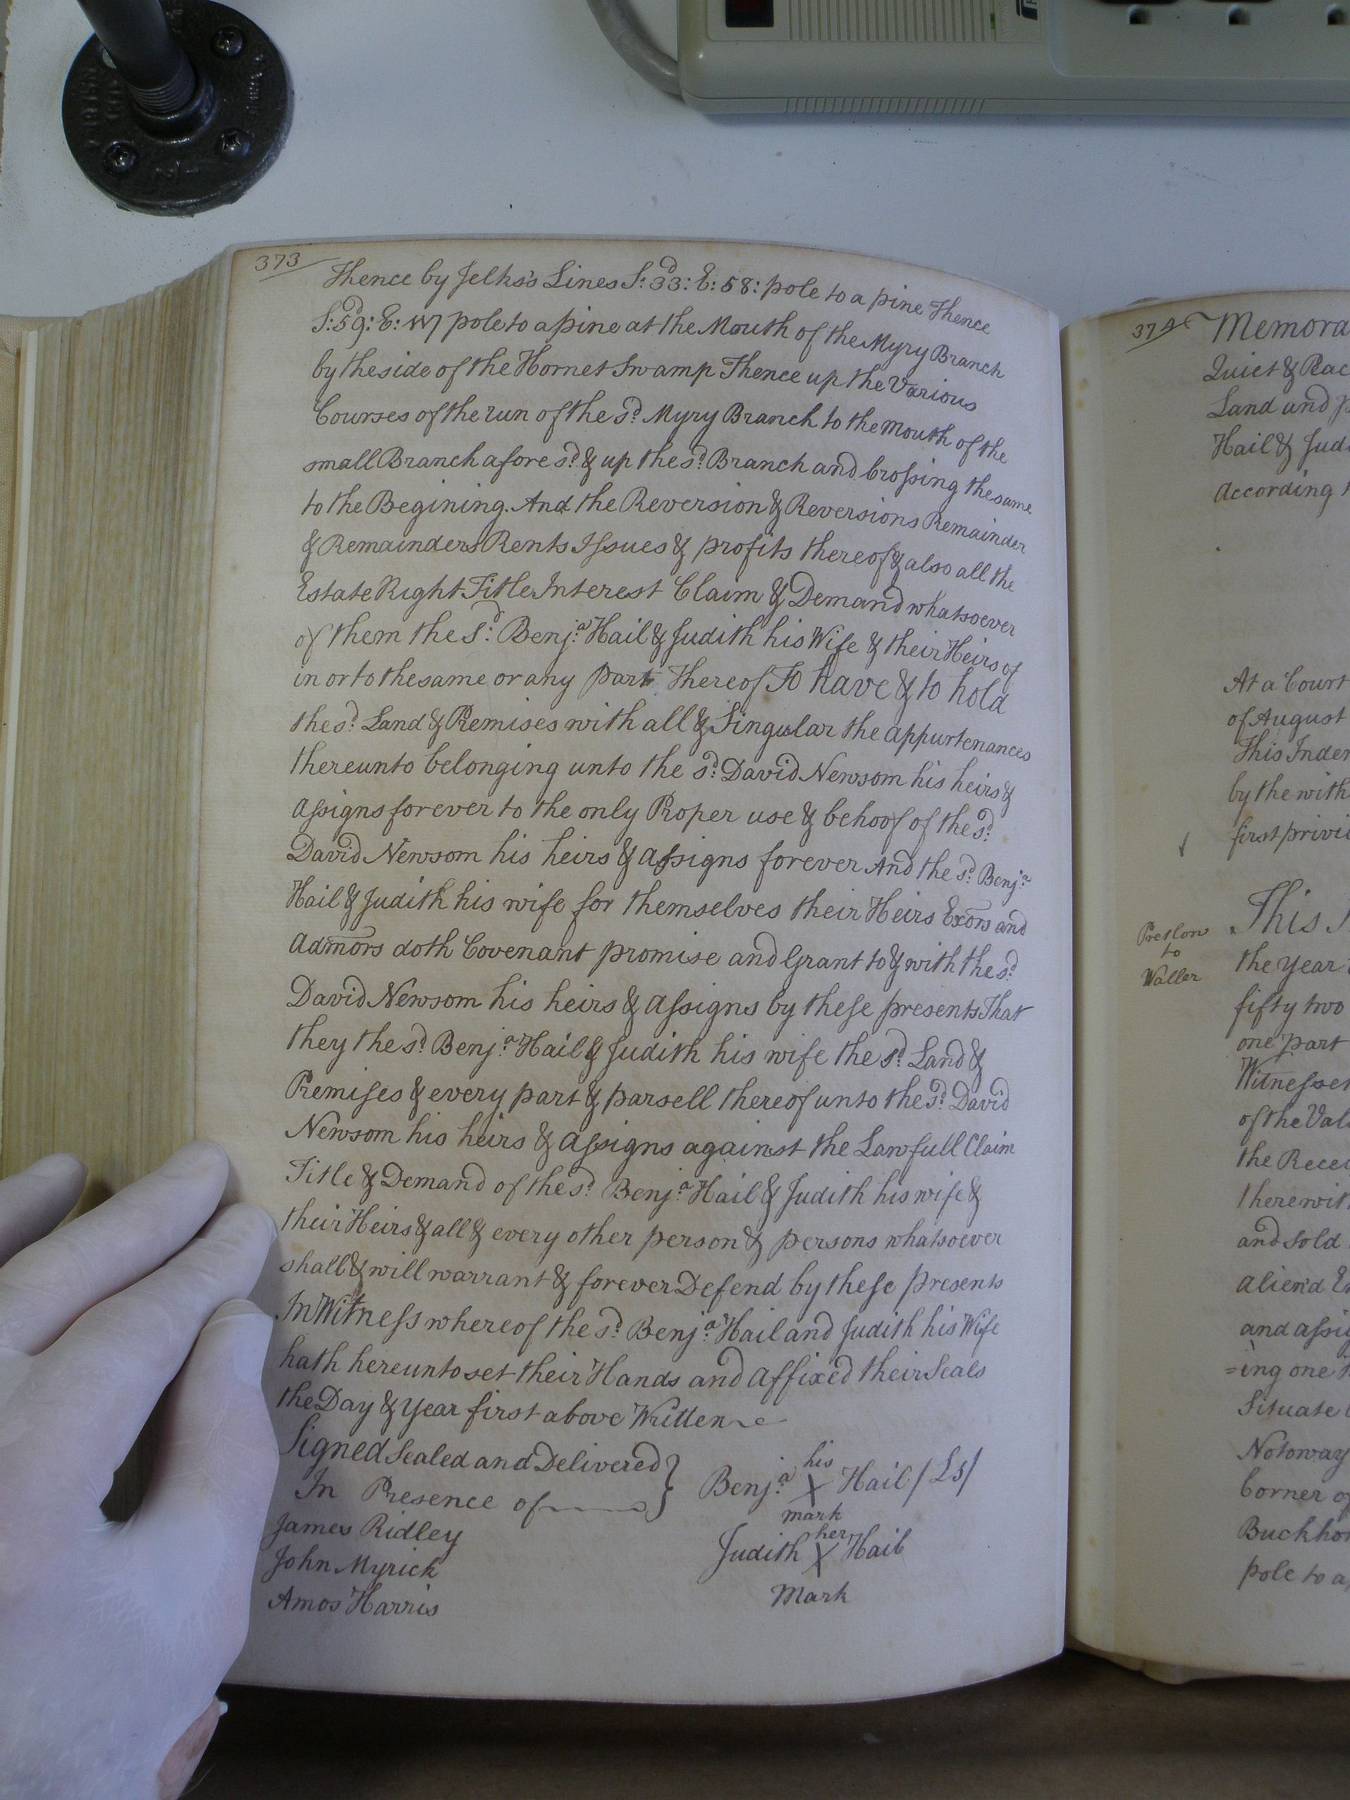 373
Thence by Jelks's Lines S:33:d E: 58: pole to a pine Thence
S:59:d E: pole to a pine at the Mouth of the Myry Branch
by the side of the Hornet Swamp Thence up the Various
Courses of the run of the sd. Myry Branch to the mouth of the
small Branch afore sd. & up the sd. Branch and Crossing the same
to the Begining. And the Reversion & Reversions Remainder
& Remainders Rents Issues & profits thereof & also all the
Estate Right Title Interest Claim & Demand whatsoever
of them the sd: Benja. Hail & Judith his Wife & their Heirs of
in or to the same or any part Thereof To have & to hold
the sd. Land & Premises with all & Singular the appurtenances
thereunto belonging unto the sd. David Newsom his heirs &
Assigns forever to the only Proper use & behoof of the sd.
David Newsom his heirs & Assigns forever And the sd. Benja.
Hail & Judith his wife for themselves their Heirs Exors and
Admors doth Covenant promise and Grant to & with the sd.
David Newsom his heirs & Assigns by these presents That
they the sd. Benja. Hail & Judith his wife the sd. Land &
Premises & every part & parsell thereof unto the sd. David
Newsom his heirs & Assigns against the Lawfull Claim
Title & Demand of the sd. Benja. Hail & Judith his wife &
their Heirs & all & every other person & persons whatsoever
shall & will warrant & forever Defend by these Presents
In Witness whereof the sd. Benja. Hail and Judith his Wife
hath hereunto set their Hands and Affixed their Seals
the Day & Year first above Written
Signed Sealed and Delivered
In Presence of
James Ridley
John Myrick
Amos Harris
his
Benja. X Hail /Ls/
mark
her
Judith X Hail
Mark
374
Memora
Quiet & Peac
Land and p
Hail & Jud
according
At a Court
of August
This Inden
by the with
first privi
Pretlow
to
Waller
This
the Year
fifty two
one part
Witnesset
of the Val
the Recei
therewit
and sold
alien'd
and assig
=ing one
Situate
Notoway
Corner of
Buckho
pole to a